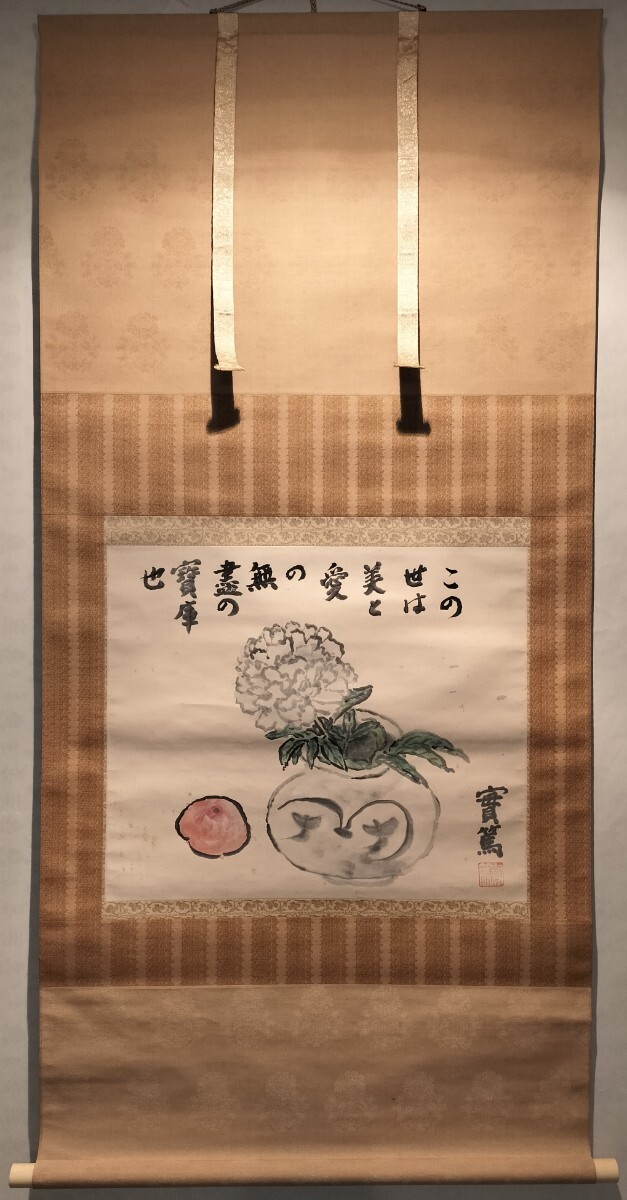 この
世は
美と
愛
の
無
盡の
寶庫
也
實篤